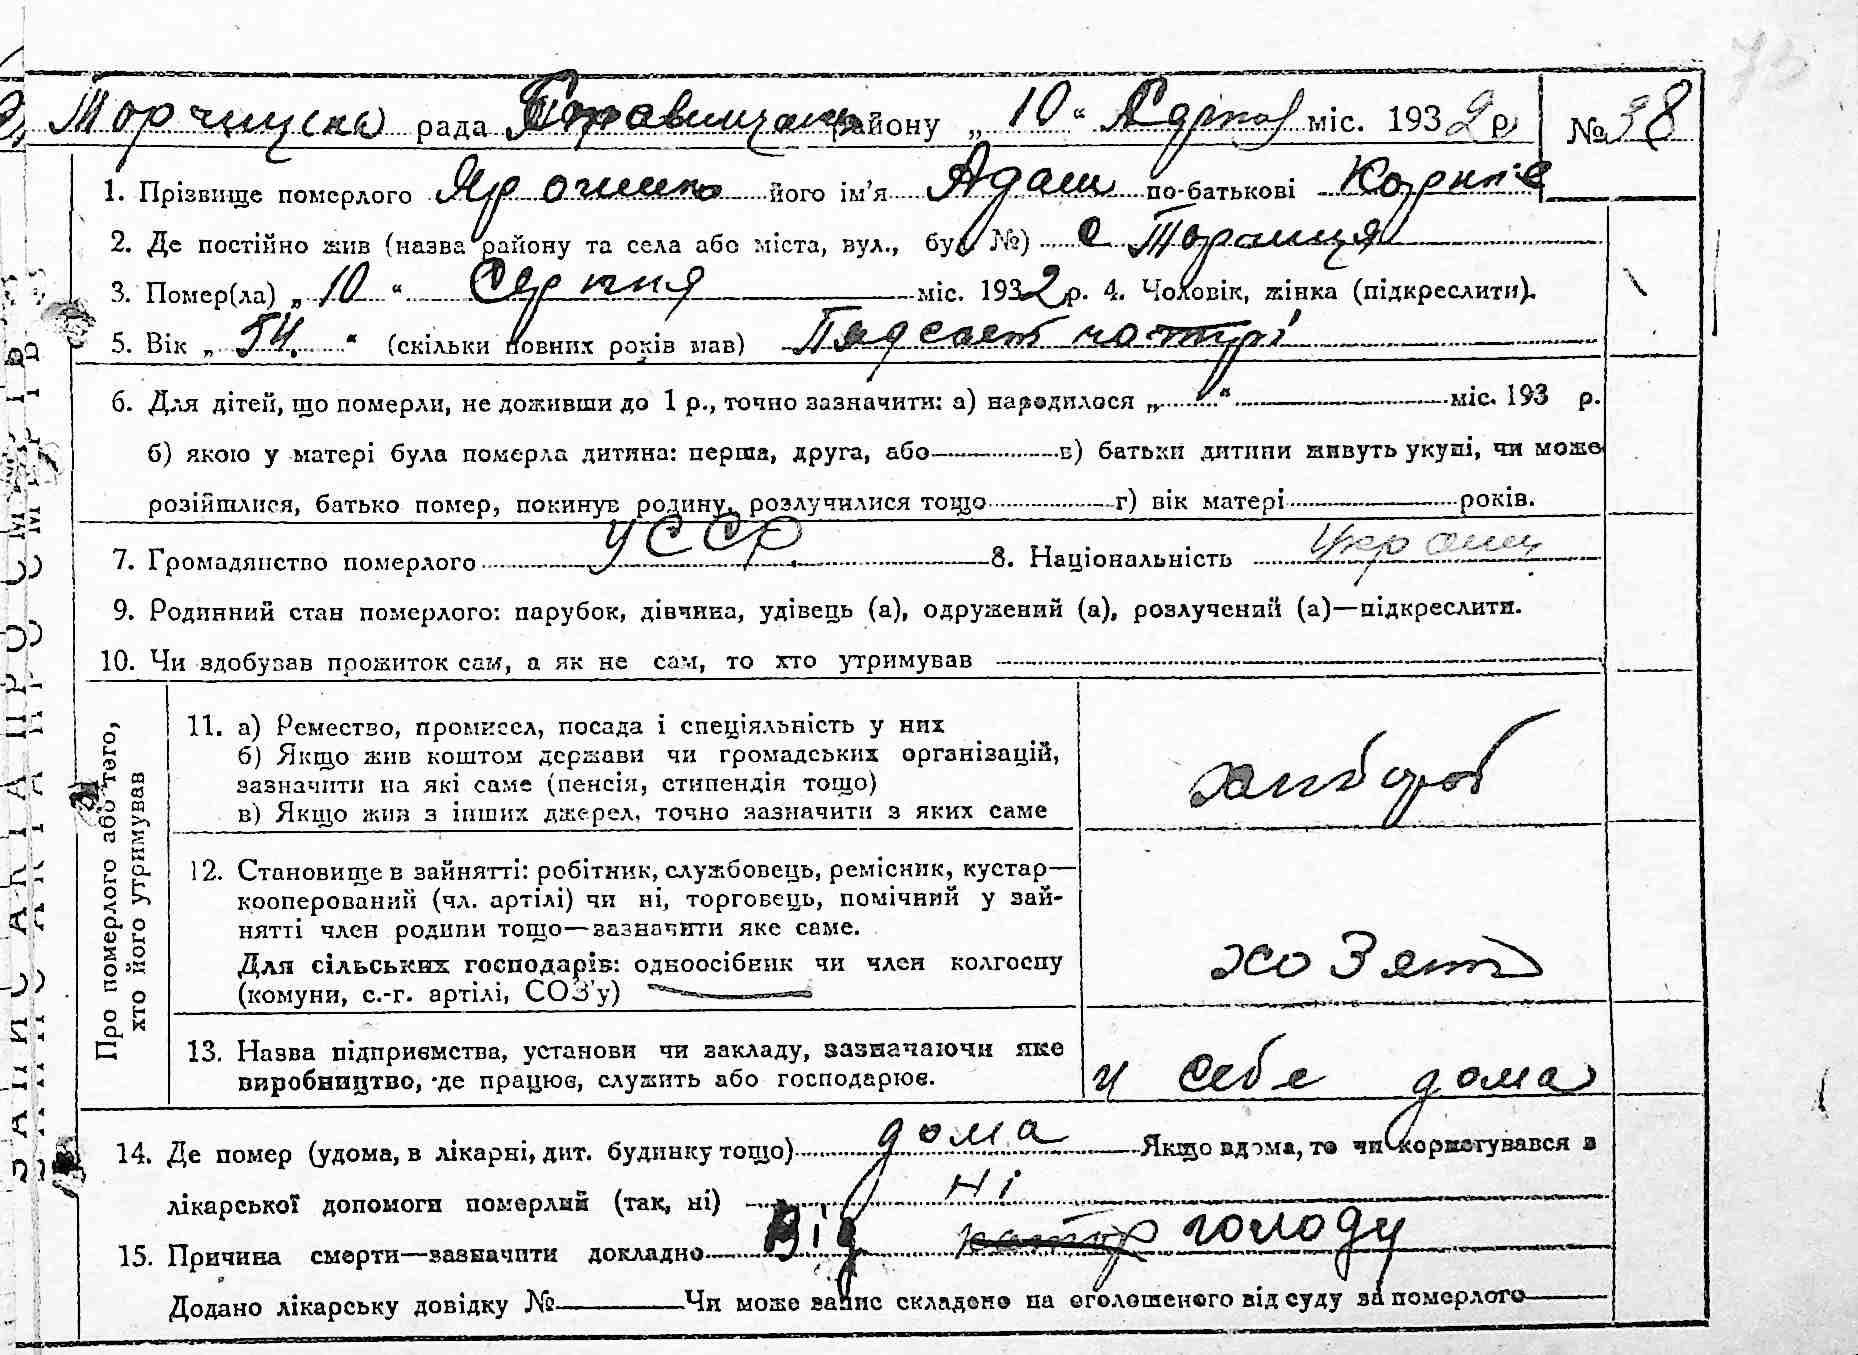 73
Торчицька рада району „10“ Серпня міс. 1932 р № 38
1. Прізвище померлого його ім’я Адам по-батькові
2. Де постійно жив (назва району та села або міста, вул., буд. №) с Торчиця
3. Помер(ла) „10“ Серпня міс. 1932 р. 4. Чоловік, жінка (підкреслити).
5. Вік „54.“ (скільки повних років мав)
6. Для дітей, що померли, не доживши до 1 р., точно зазначити: а) народилося „ “ міс. 193 р.
б) якою у матері була померла дитина: перша, друга, або в) батьки дитини живуть укупі, чи може
розійшлися, батько помер, покинув родину, розлучилися тощо г) вік матері років.
7. Громадянство померлого УССР 8. Національність
9. Родинний стан померлого: парубок, дівчина, удівець (а), одружений (а), розлучений (а)—підкреслити.
10. Чи здобував прожиток сам, а як не сам, то хто утримував
Про померлого або того,
хто його утримував
11. а) Ремество, промисел, посада і спеціяльність у них
б) Якщо жив коштом держави чи громадських організацій,
зазначити на які саме (пенсія, стипендія тощо)
в) Якщо жив з інших джерел, точно зазначити з яких саме
хлібороб
12. Становище в зайнятті: робітник, службовець, ремісник, кустар—
кооперований (чл. артілі) чи ні, торговець, помічний у зай-
нятті член родини тощо—зазначити яке саме.
Для сільських господарів: одноосібник чи член колгоспу
(комуни, с.-г. артілі, СОЗ’у)
13. Назва підприємства, установи чи закладу, зазначаючи яке
виробництво, де працює, служить або господарює.
у себе дома
14. Де помер (удома, в лікарні, дит. будинку тощо) дома Якщо вдома, то чи користувався з
лікарської допомоги померлий (так, ні) ні
15. Причина смерти—зазначити докладно Від голоду
Додано лікарську довідку № Чи може запис складено на оголошеного від суду за померлого